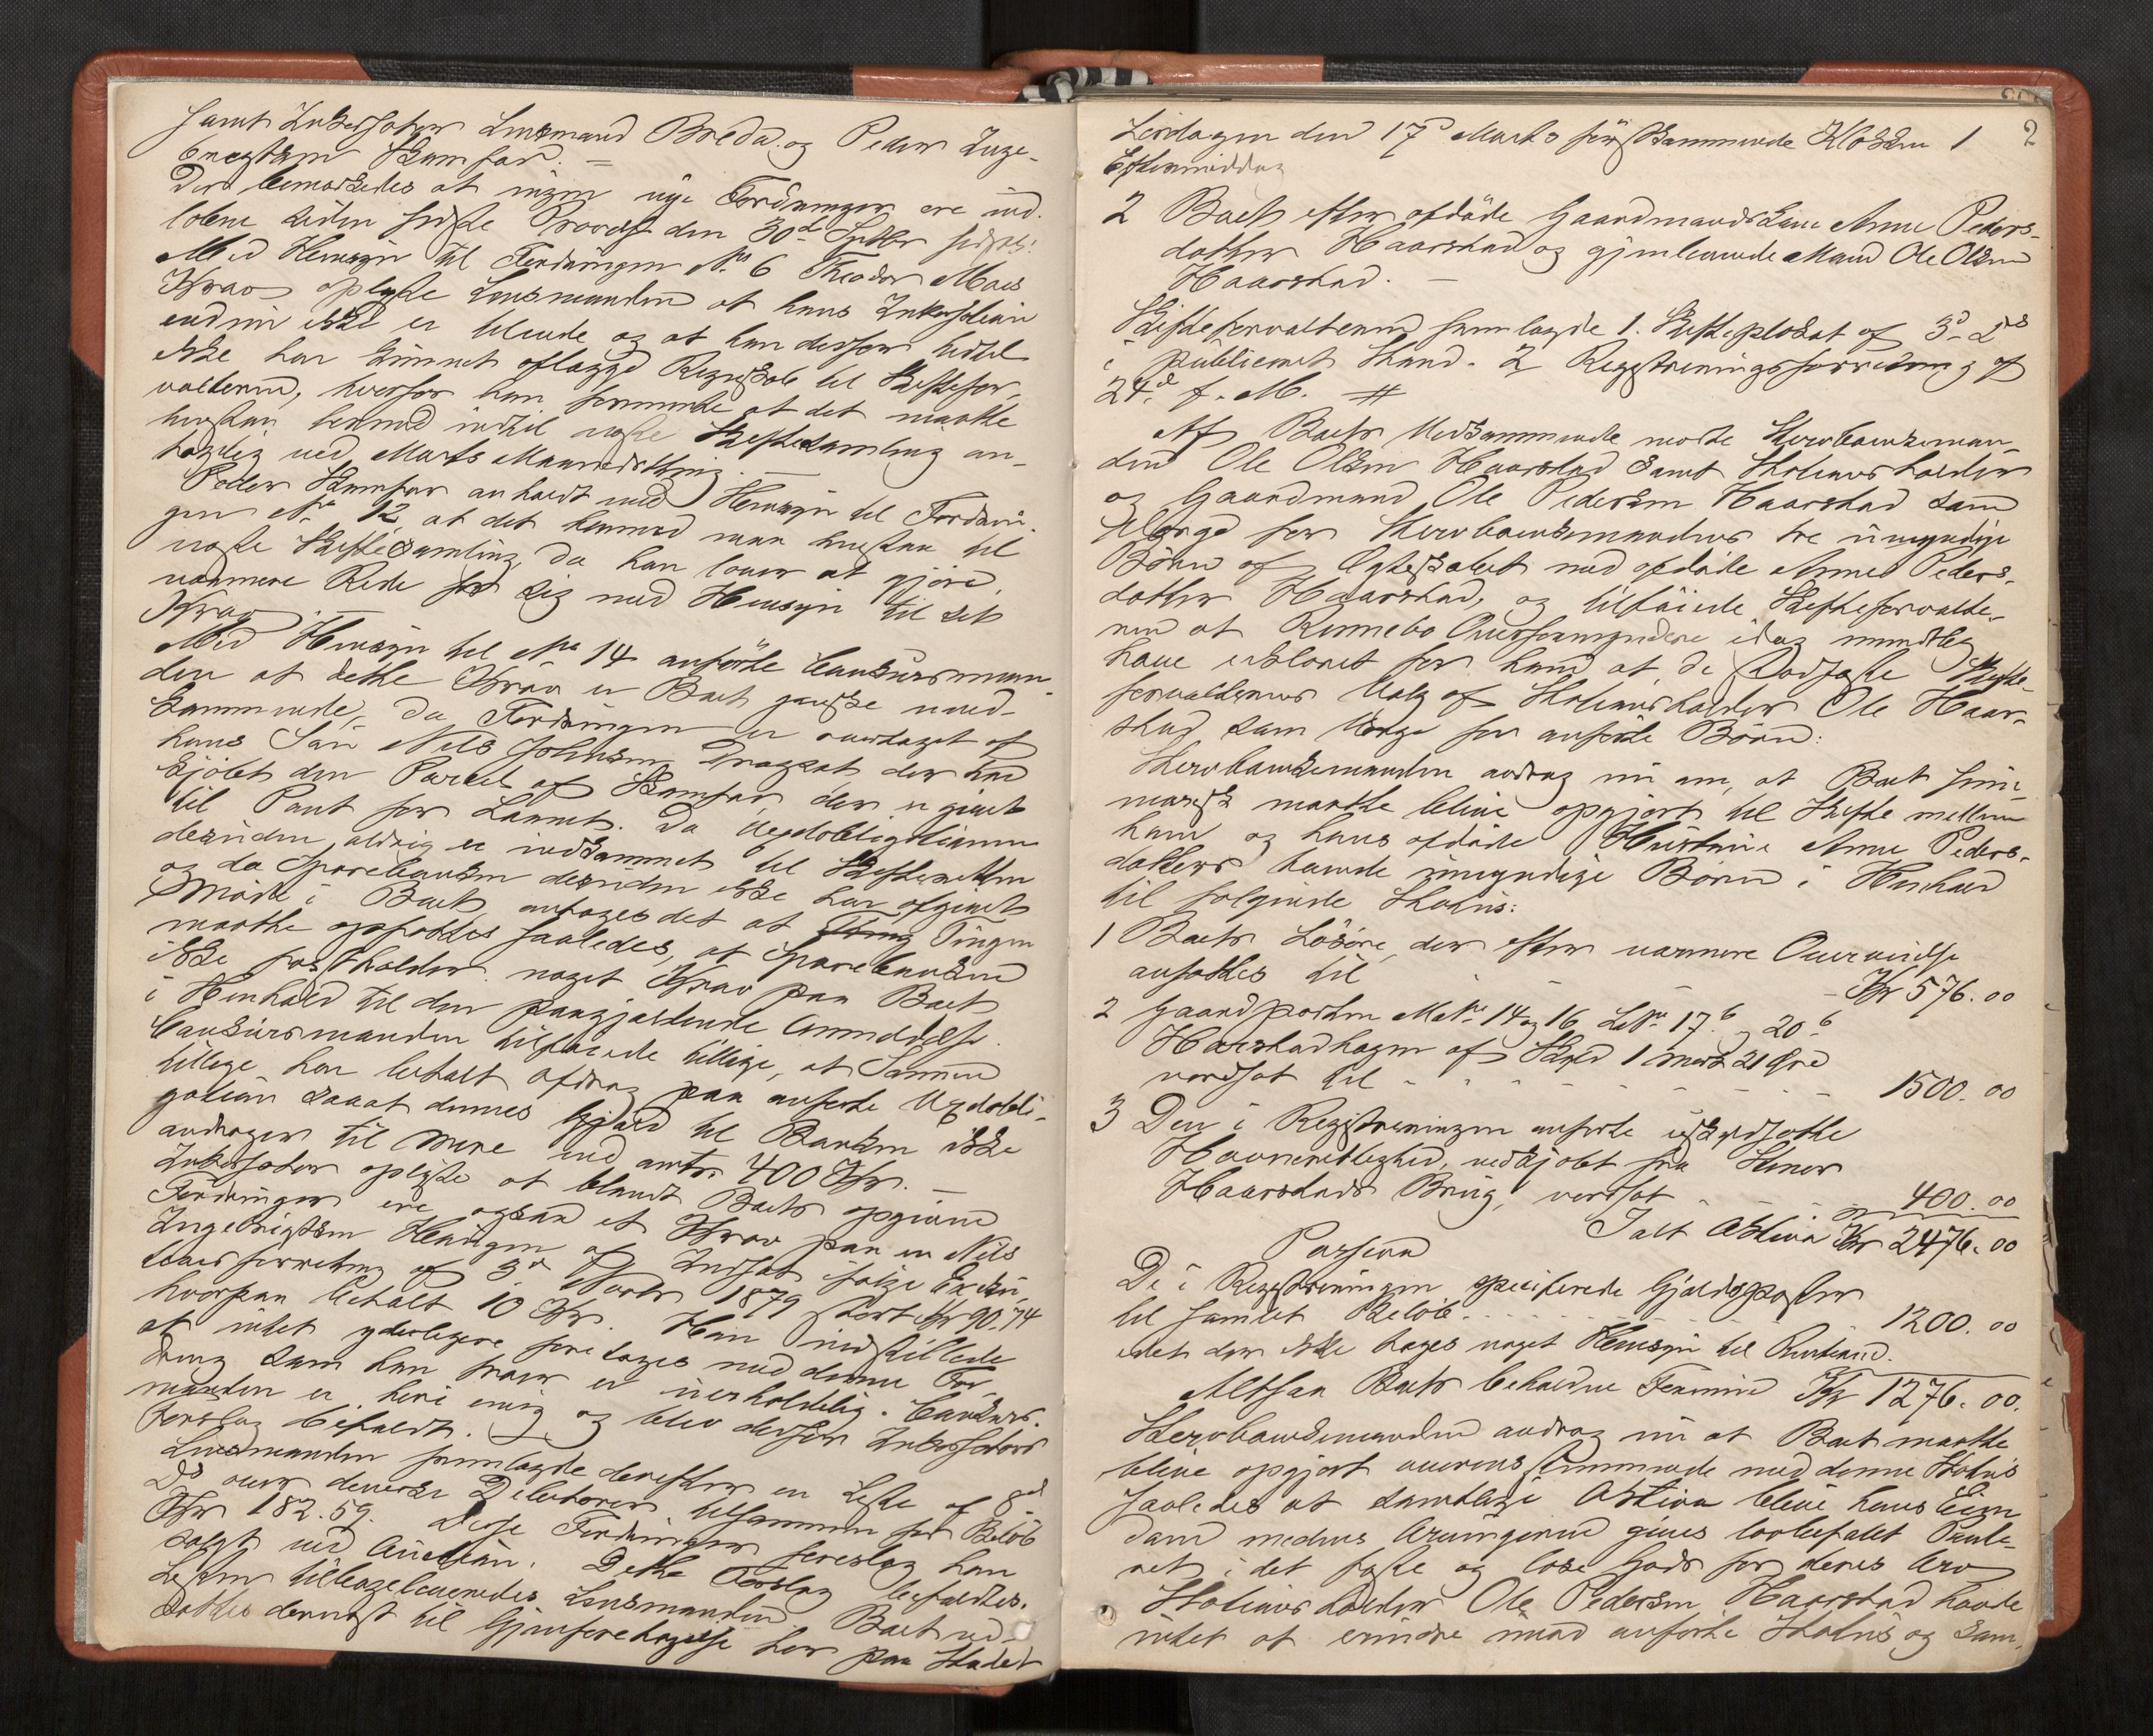 samt Inkassator Lensmand Breda og Peder Inge-
brigtsen Kamfar. =
Der bemærkedes at ingen nye Fordringer ere ind-
løbne siden sidste den 30te Septbr sidstl:
Med Hensyn til Fordringen No 6 Theodor Moes
Krav oplyste Lensmanden at hans Inkassation
endnu ikke er tilende og at han derfor hidtil
ikke har kunnet aflægge Regnskab til Skiftefor-
valteren, hvorfor han formente at det maatte
henstaa hermed indtil næste Skiftesamling an-
tagelig ved Marts Maanedsthing. —
Peder Kamfar anholdt med Hensyn til Fordrin-
gen No 12, at det hermed maa henstaa til
næste Skiftesamling da han lover at gjøre
nærmere Rede for sig med Hensyn til sit
Krav. —
Med Hensyn til No 14 anførte Concursman-
den at dette Krav er Boet ganske uved-
kommende, da Fordringen er overtaget af
hans Søn Nils Johnsen der har
kjøbt den Parcel af Kamfar, der er givet
til Pant for Laanet. Da Vexelobligationen
desuden aldrig er indkommet til Skifteretten
og da Sparebanken desuden ikke har afgivet
Møde i Boet, antages det at Tingen
maatte opfattes saaledes, at Sparebanken
ikke fastholder noget Krav paa Boet
i Henhold til den paagjældende Anmeldelse.
Concursmanden tilføiede tillige, at Sønnen
tillige har betalt Afdrag paa anførte Vexelobli-
gation saaat dennes Gjæld til Banken ikke
andrager til mere end omtr. 400 Kr. —
Inkassator oplyste at blandt Boets opgivne
Fordringer ere ogsaa et Krav paa en Nils
Ingebrigtsen Haugen af Indset ifølge Exeku-
tionsforretning af 3die Marts 1879 stort Kr 90.74
hvorpaa betalt 10 Kr. Han indstillede
at intet yderligere foretages med denne For-
dring som han tror er uerholdelig. Concurs-
manden er heri enig og blev derfor Inkassators
Forslag bifaldt. —
Lensmanden fremlagde derefter en Liste af 8de
Ds over diverse Debitorer tilsammen for Beløb
Kr 182.59. Disse Fordringer foreslog han
solgt ved Auction. Dette Forslag bifaldtes.
Listen tilbageleveredes Lensmanden Boet ud-
sattes dernæst til Gjenforetagelse her paa Stedet
2
Lørdagen den 17de Marts førstkommende Klokken 1
Eftermiddag
2 Boet efter afdøde Gaardmandskone Anne Peders-
datter Haarstad og gjenlevende Mand Ole Olsen
Haarstad. —
Skifteforvalteren fremlagde 1. Skifteplakat af 3die Ds
i publiceret Stand. 2 Registreringsforretning af
24de f. M. #
Af Boets Vedkommende mødte Stervboenkeman-
den Ole Olsen Haarstad samt Stolenarholder
og Gaardmand Ole Pedersen Haarstad som
Værge for Stervboenkemandens tre umyndige
Børn af Ægteskabet med afdøde Anne Peders-
datter Haarstad, og tilføiede Skifteforvalte-
ren at Rennebo Overformyndere idag mundtlig
have erklæret for ham at de Skifte-
forvalterens Valg af Ole Haar-
stad som Værge for anførte Børn:
Stervboenkemanden androg nu om, at Boet sum-
marisk maatte blive opgjort til Skifte mellem
ham og hans afdøde Hustrue Anne Peders-
datters umyndige Børn i Henhold
til følgende Status:
1 Boets Løsøre, der efter nærmere Overveielse
ansættes til - - Kr 576.00
2 Gaardparten MatNo 14 og 16 LNo 17b og 20b
Haarstadhagen af Skyld 1 mark 21 Øre
værdsat til - - - - - - 1500.00
3 Den i Registreringen anførte uskyldsatte
Havnerettighed, indkjøbt fra
Haarstads Brug, værdsat - - - - 400.00
Ialt Aktiva Kr 2476.00
Passiva
De i Registreringen specificerede Gjældsposter
til samlet Beløb - - - - - 1200.00
idet der ikke tages noget Hensyn til Renterne.
Altsaa Boets beholdne Formue Kr 1276.00.
Stervboenkemanden androg nu at Boet maatte
blive opgjort overensstemmende med denne Status
saaledes at samtlige Aktiva blive hans Eien-
dom medens Arvingerne gives lovbefalet Pante-
ret i det faste og løse Gods for deres Arv
Ole Pedersen Haarstad havde
intet at erindre imod anførte Status og sam-